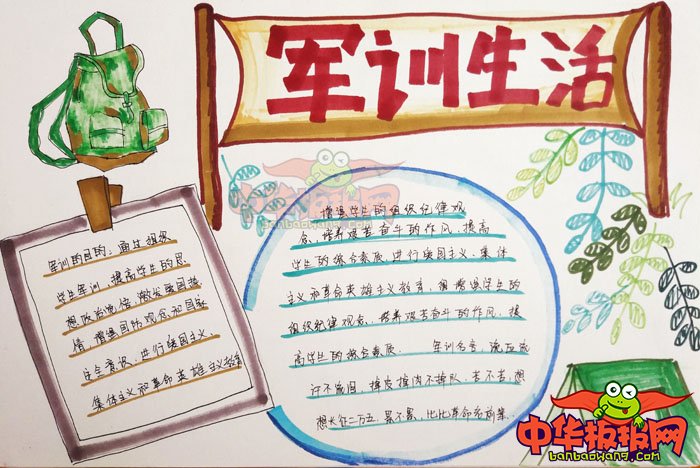 军训生活
中华板报网
军训的目的：通过组织
学生军训，提高学生的思
想政治觉悟，激发爱国热
情，增强国防观念和国家
安全意识；进行爱国主义、
集体主义和革命英雄主义教育
增强学生的组织纪律观
念，培养艰苦奋斗的作风，提高
学生的综合素质，进行爱国主义、集体
主义和革命英雄主义教育，
增强学生的
组织纪律观念，培养艰苦奋斗的作风，提
高学生的综合素质。 军训名言：流血流
汗不流泪，掉皮掉肉不掉队，苦不苦，想
想长征二万五，累不累，比比革命老前辈。
中华板报网
banbaowang.com